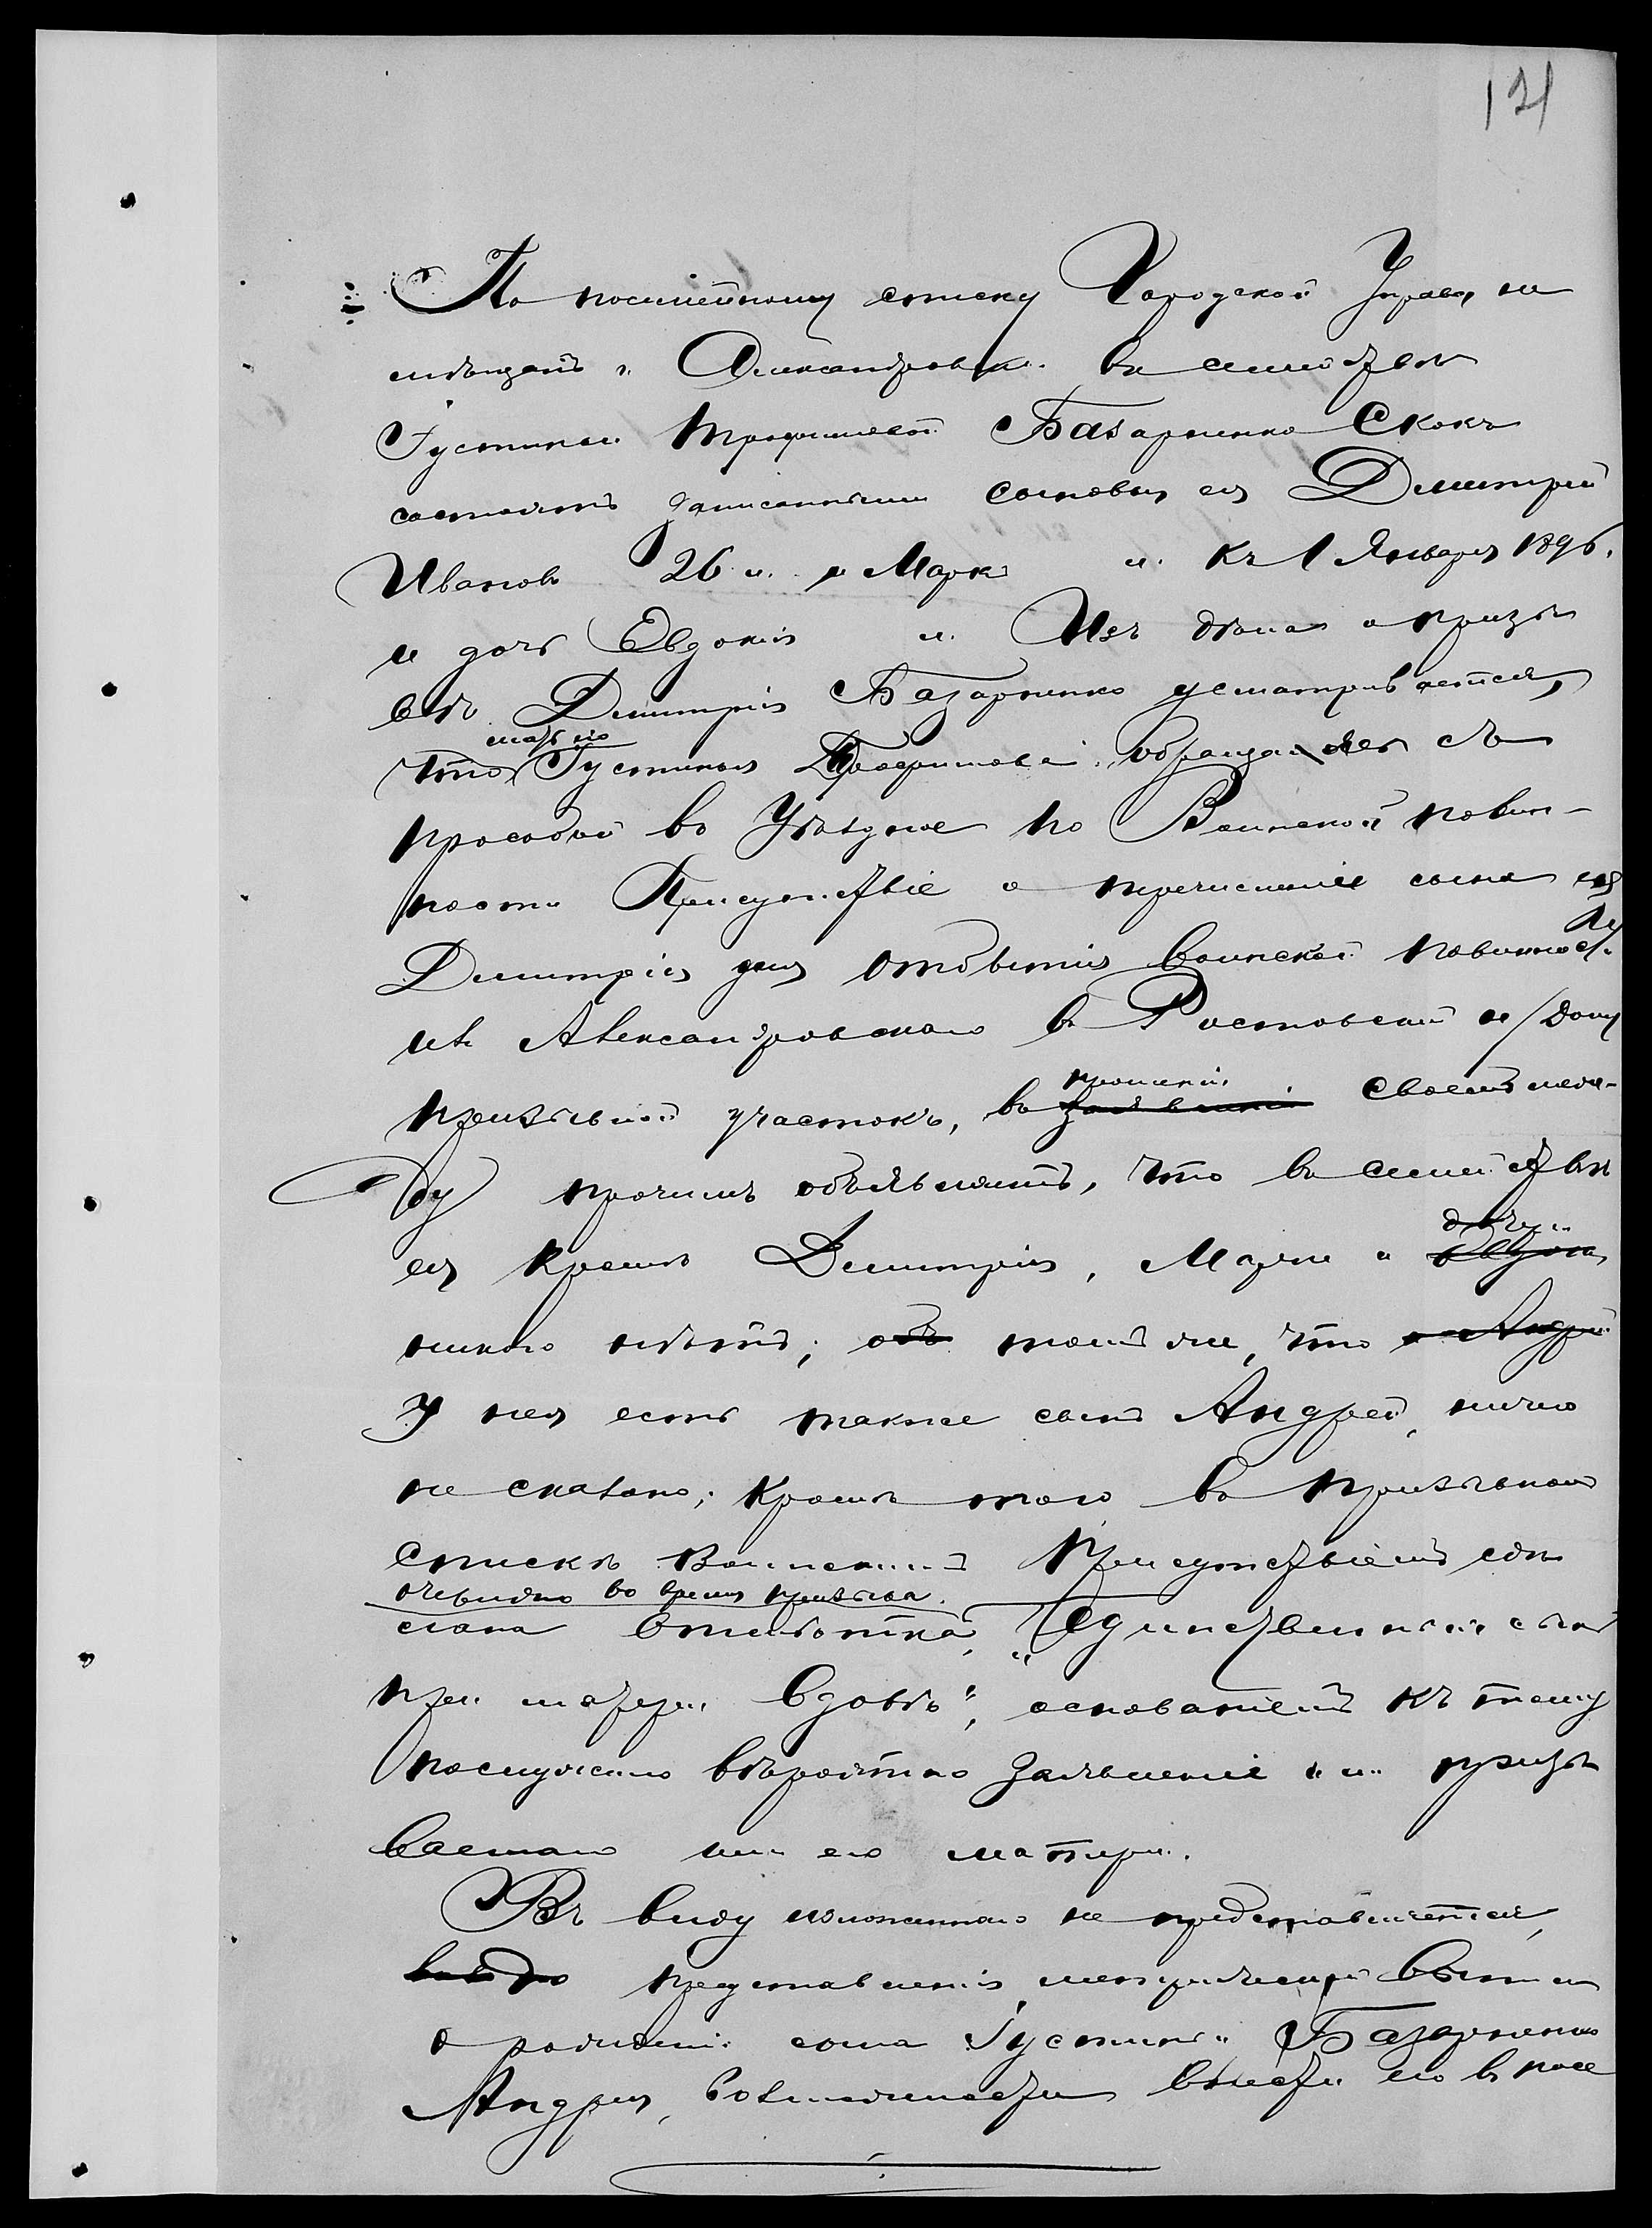 121
По посемейному списку Городской Управы на
мѣщанъ г. Александровска въ семействѣ
Густиньи Трофимовой Базарненко Скокъ
состоятъ записанными сыновья ея Димитрій
Ивановъ 26 л. и Марко л. къ 1 Января 1896.
и дочь Евдокія л. Изъ дѣла о призы
вѣ Димитрія Базарненко усматривается,
мать его
что Густинья Трофимова обращаясь съ
прозьбой въ Уѣздное по Воинской повин-
ности Присутствіе о перечисленіи сына ея
Димитрія для отбытія воинской повинности
изъ Александровскаго въ Ростовскій н/Дону
прошеніи
призывной участокъ, въ заявленіи своемъ меж-
ду прочимъ объявляетъ, что въ семействѣ
дочери
ея кромѣ Димитрія, Марка и Евдокіи
никого нѣтъ; объ томъ же, что о Андрей
у нея есть также сынъ Андрей, ничего
не сказано; кромѣ того въ призывномъ
спискѣ Воинскимъ Присутствіемъ сдѣ
очевидно во время призыва
лана отмѣтка, "Единственный сынъ
при матери вдовѣ", основаніемъ къ тому
послужило вѣроятно заявленіе или призы
ваемаго или его матери.
Въ виду изложеннаго не представляется,
представленія метрической выписи
о рожденіи сына Густиньи Базарненко
Андрея, возможности внести его въ посе